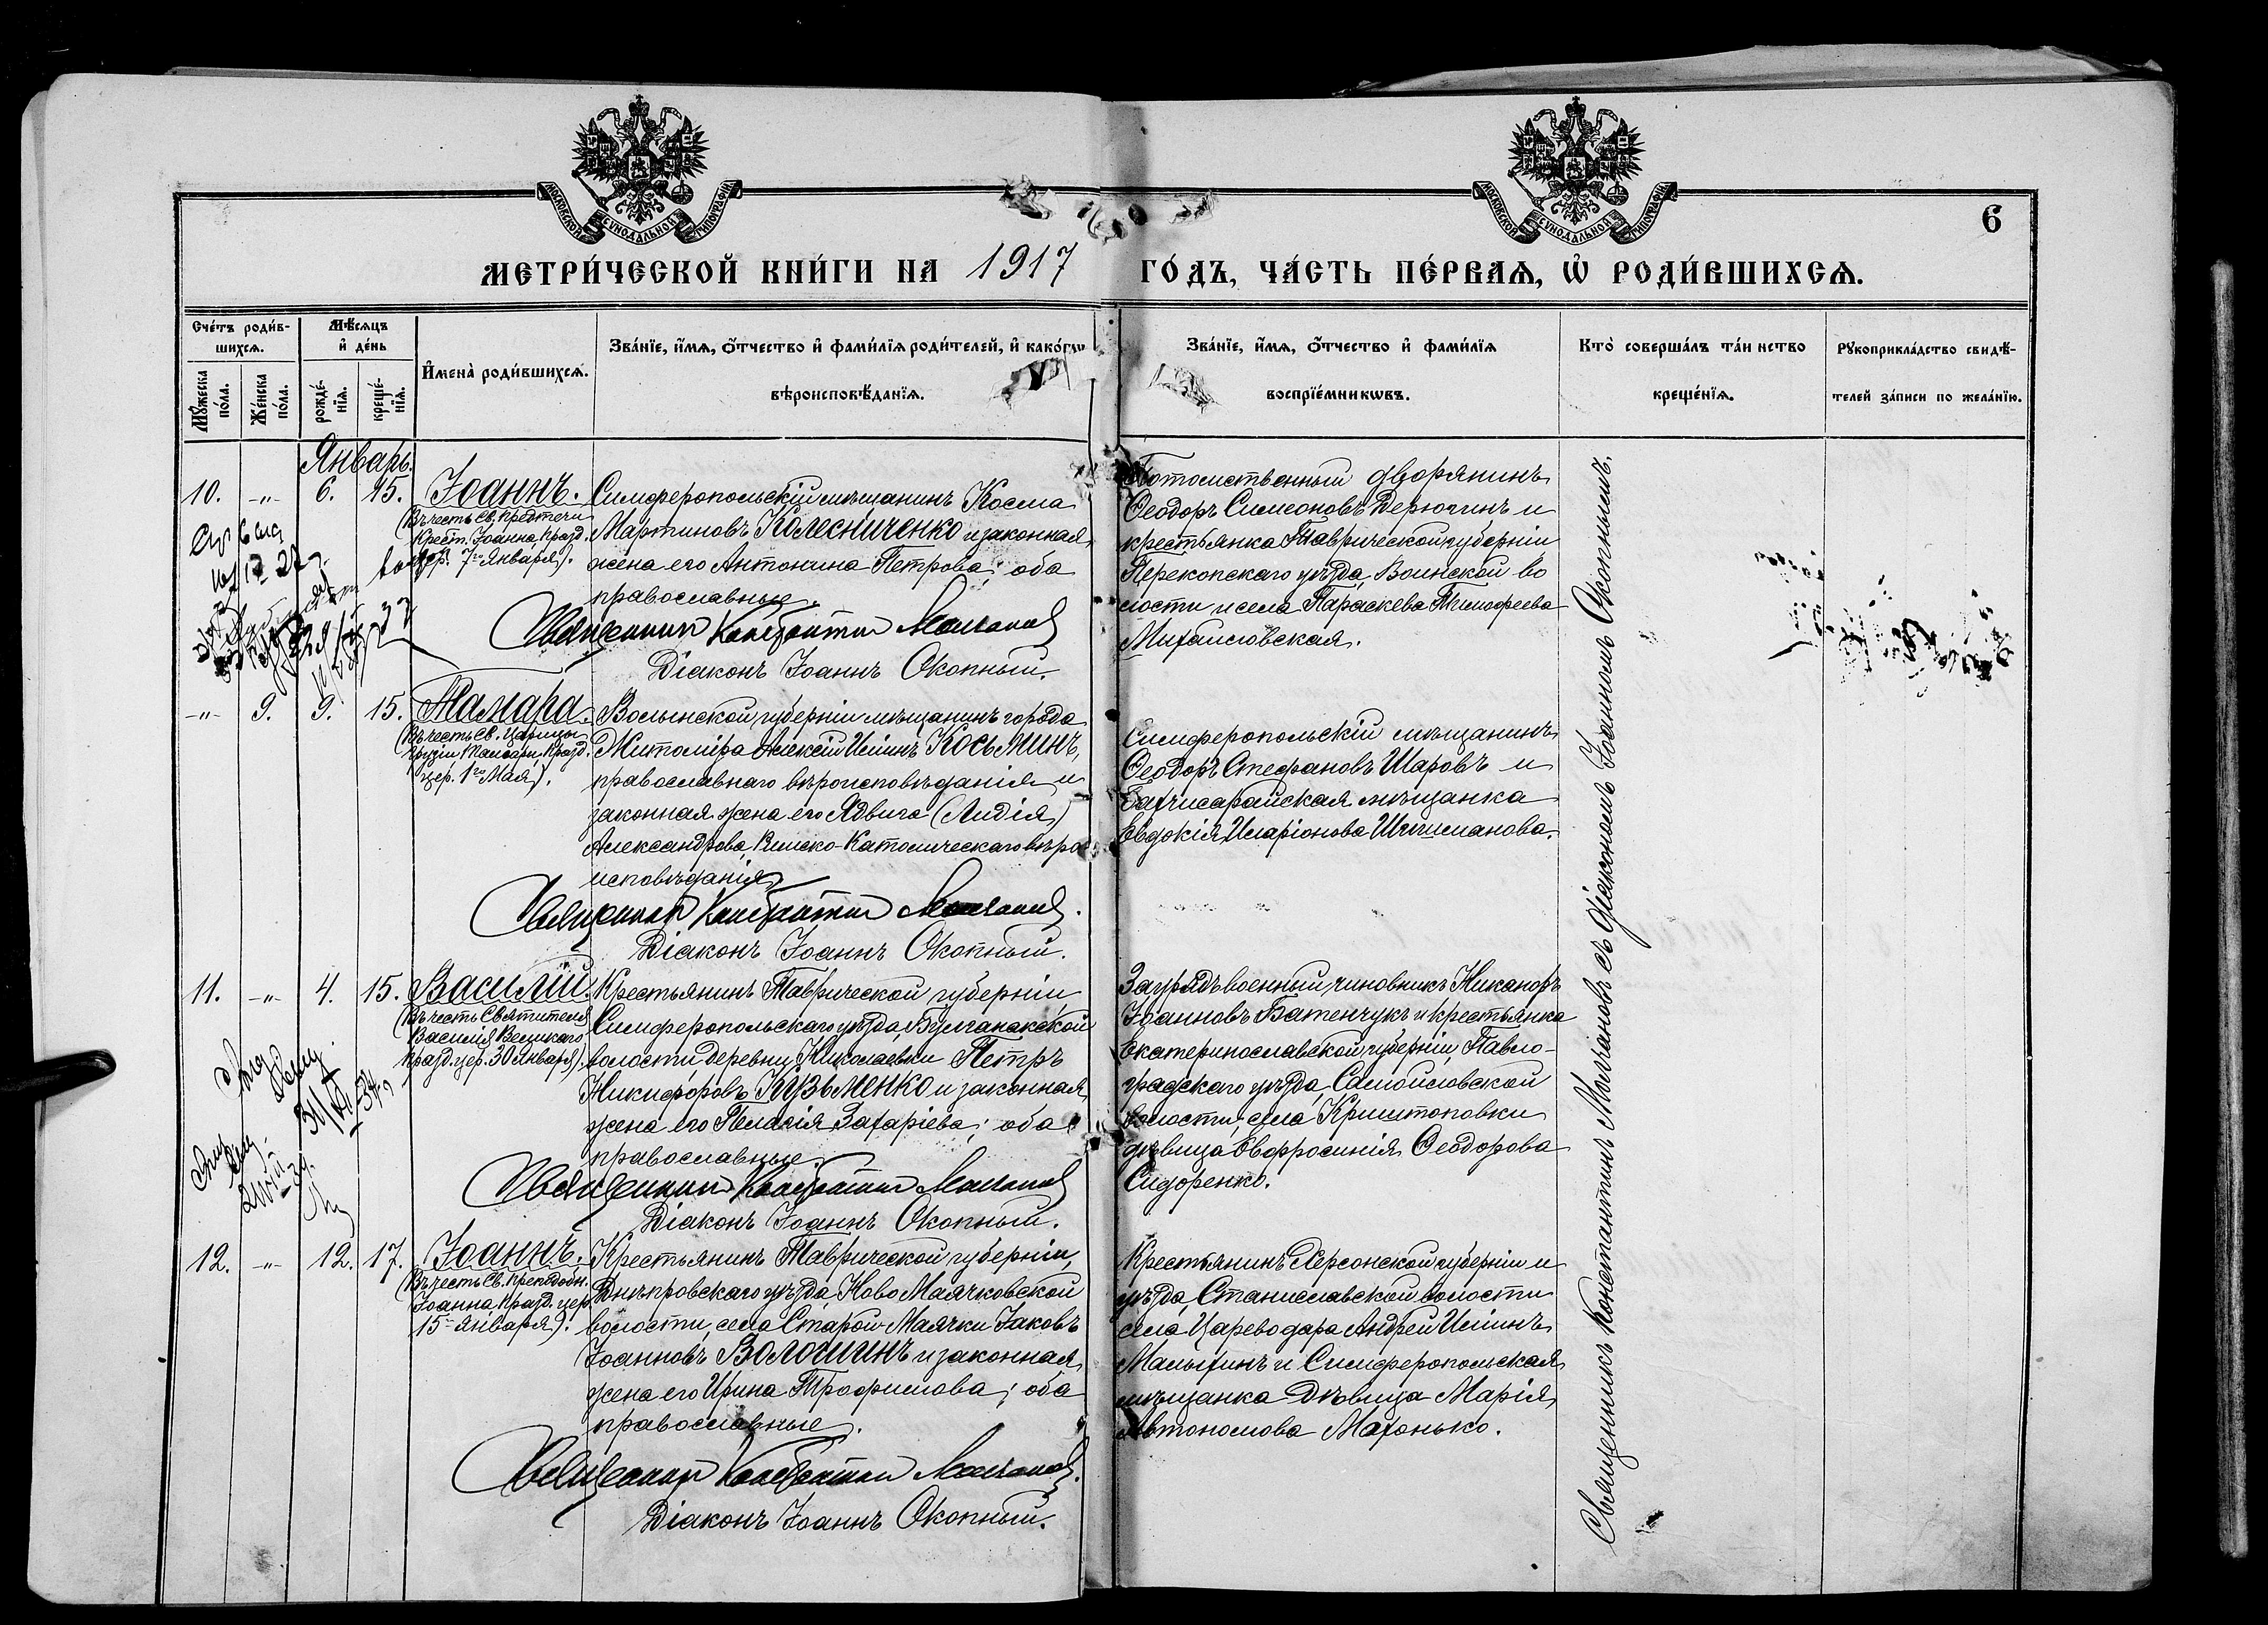 МОСКОВСКОЙ СѴНОДАЛЬНОЙ ТИПОГРАФІИ
МОСКОВСКОЙ СѴНОДАЛЬНОЙ ТИПОГРАФІИ
6
МЕТРИ́ЧЕСКОЙ КНИ́ГИ НА 1917 ГО́ДЪ, ЧА́СТЬ ПЕ́РВАѦ, Ѽ РОДИ́ВШИХСѦ.
Сче́тъ роди́в-
шихсѧ.
Мѣ́сѧцъ
и҆ де́нь
Мꙋ́жеска
по́ла.
Же́нска
по́ла.
рожде́-
нїѧ.
креще́-
нїѧ.
И҆мена̀ роди́вшихсѧ.
Зва́нїе, и҆́мѧ, ѻ҆́тчество и҆ фами́лїѧ роди́телей, и҆ како́гѡ
вѣроисповѣ́данїѧ.
Зва́нїе, и҆́мѧ, ѻ҆́тчество и҆ фами́лїѧ
воспрїе́мникѡвъ.
Кто̀ соверша́лъ та́инство
креще́нїѧ.
Рꙋкоприкла́дство свидѣ́-
телей за́писи по жела́нїю.
Январь.
10. -"- 6. 15. Іоаннъ.
(Въ честь Св. Предтечи
Крест. Іоанна, празд.
цер. 7го Января).
Симферопольскій мѣщанинъ Косма
Мартиновъ Колесниченко и законная
жена его Антонина Петрова; оба
православные.
Священникъ Константин Молчанов
Діаконъ Іоаннъ Окопный.
Потомственный дворянинъ
Ѳеодоръ Симеоновъ Дерюгинъ и
крестьянка Таврической губерніи
Перекопскаго уѣзда, Воинской во
лости и села Параскева Тимофеева
Михайловская.
-"- 9. 9. 15. Тамара.
(Въ честь Св. Царицы
Грузіи Тамары, празд.
цер. 1го Мая).
Волынской губерніи мѣщанинъ города
Житоміра Алексій Иліинъ Косьминъ,
православнаго вѣроисповѣданія и
законная жена его Ядвига (Лидія)
Александрова, Римско-Католическаго вѣро
исповѣданія.
Священникъ Константин Молчанов.
Діаконъ Іоаннъ Окопный.
Симферопольскій мѣщанинъ
Ѳеодоръ Стефановъ Шаровъ и
Бахчисарайская мѣщанка
Евдокія Иларіонова Шишманова.
11. -"- 4. 15. Василій.
(Въ честь Святителя
Василія Великаго
празд. цер. 30 Января).
Крестьянинъ Таврической губерніи
Симферопольскаго уѣзда, Булганакской
волости, деревни Николаевки Петръ
Никифоровъ Кузьменко и законная
жена его Пелагія Захаріева; оба
православные.
Священникъ Константин Молчанов
Діаконъ Іоаннъ Окопный.
Заурядъ военный чиновникъ Никаноръ
Іоанновъ Батенчукъ и крестьянка
Екатеринославской губерніи, Павло-
градскаго уѣзда, Самойловской
волости, села Криштоповки
дѣвица Евфросинія Ѳеодорова
Сидоренко.
12. -"- 12. 17. Іоаннъ.
(Въ честь Св. Преподобн.
Іоанна, празд. цер.
15го Января).
Крестьянинъ Таврической губерніи,
Днѣпровскаго уѣзда, Ново Маячковской
волости, села Старой-Маячки Іаковъ
Іоанновъ Волошинъ и законная
жена его Ирина Трофимова; оба
православные.
Священникъ Константин Молчанов.
Діаконъ Іоаннъ Окопный.
Крестьянинъ Херсонской губерніи и
уѣзда, Станиславской волости
села Цареводара Андрей Иліинъ
Малыхинъ и Симферопольская
мѣщанка дѣвица Марія
Автономова Махонько.
Священникъ Константинъ Молчановъ съ діакономъ Іоанномъ Окопнымъ.